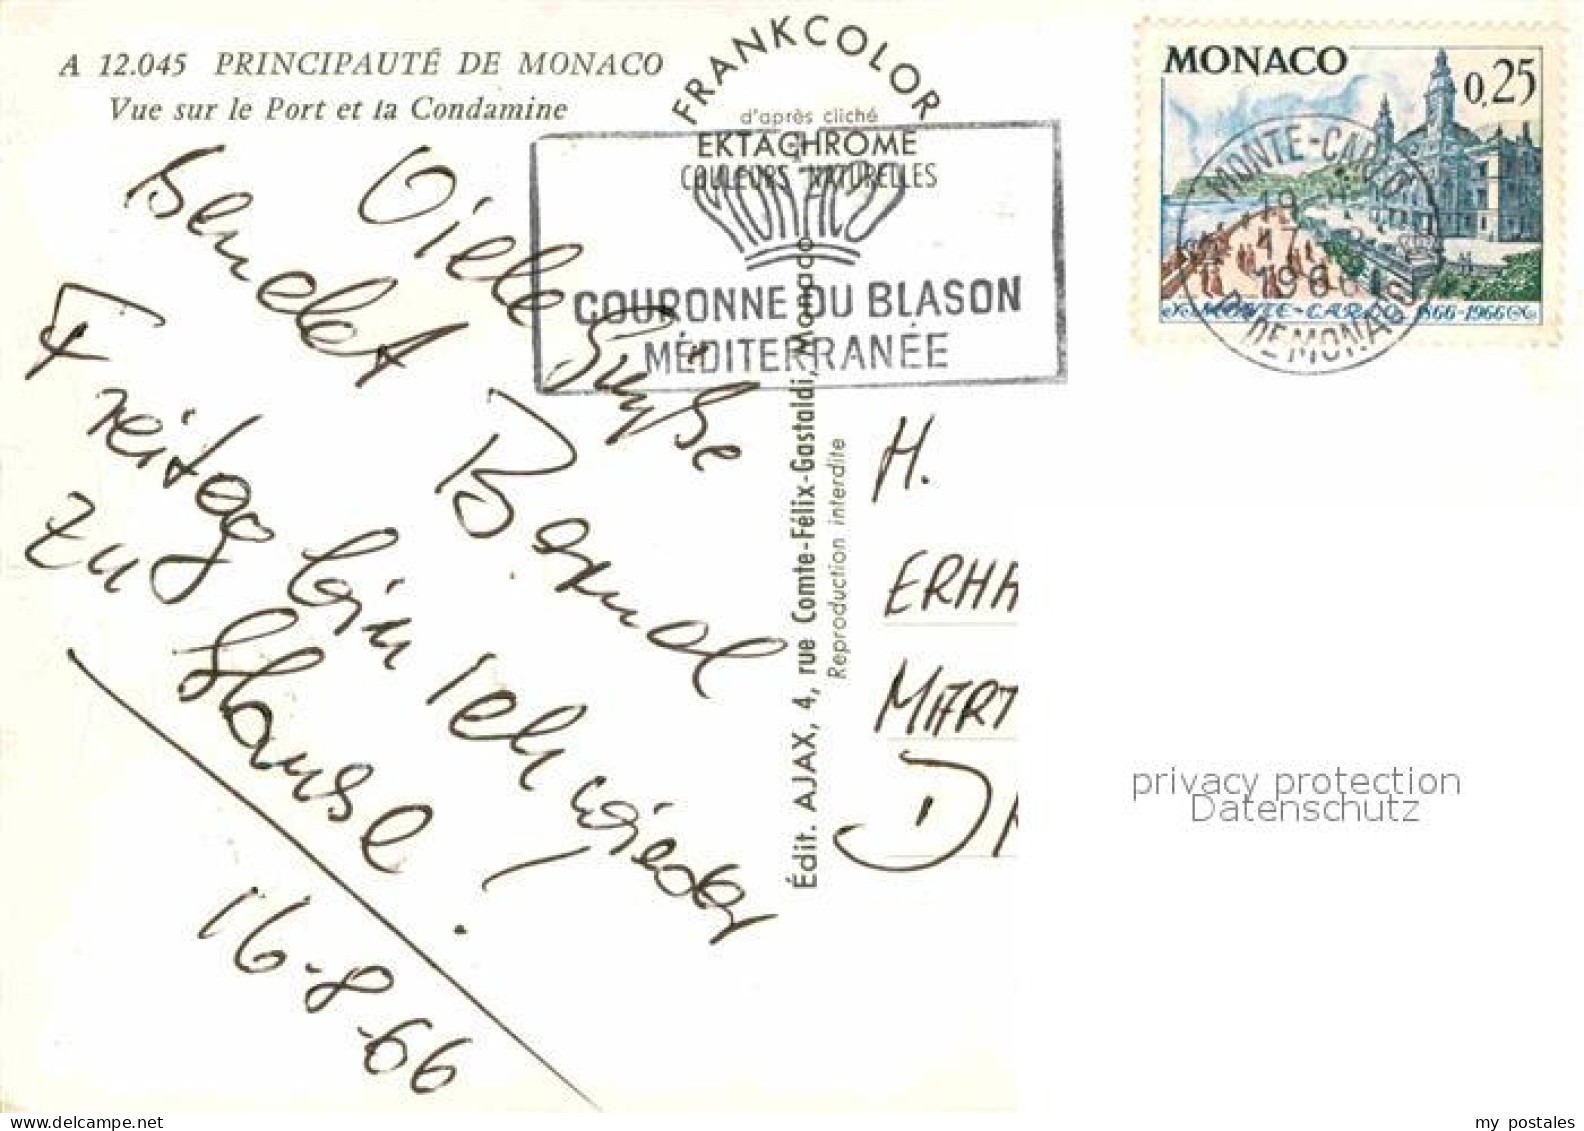 A 12.045 PRINCIPAUTÉ DE MONACO
Vue sur le Port et la Condamine
FRANKCOLOR
d'après cliché
EKTACHROME
COULEURS NATURELLES
MONACO
COURONNE DU BLASON
MÉDITERRANÉE
MONACO
0,25
MONTE-CARLO
19
17
1966
DE MONACO
MONTE-CARLO 1866-1966
Viele Grüße
sendet Bernd
Freitag bin ich wieder
zu Hause!
16-8-66
Édit. AJAX, 4, rue Comte-Félix-Gastaldi, Monaco
Reproduction interdite
H.
ERHA
MART
DA
privacy protection
Datenschutz
my postales